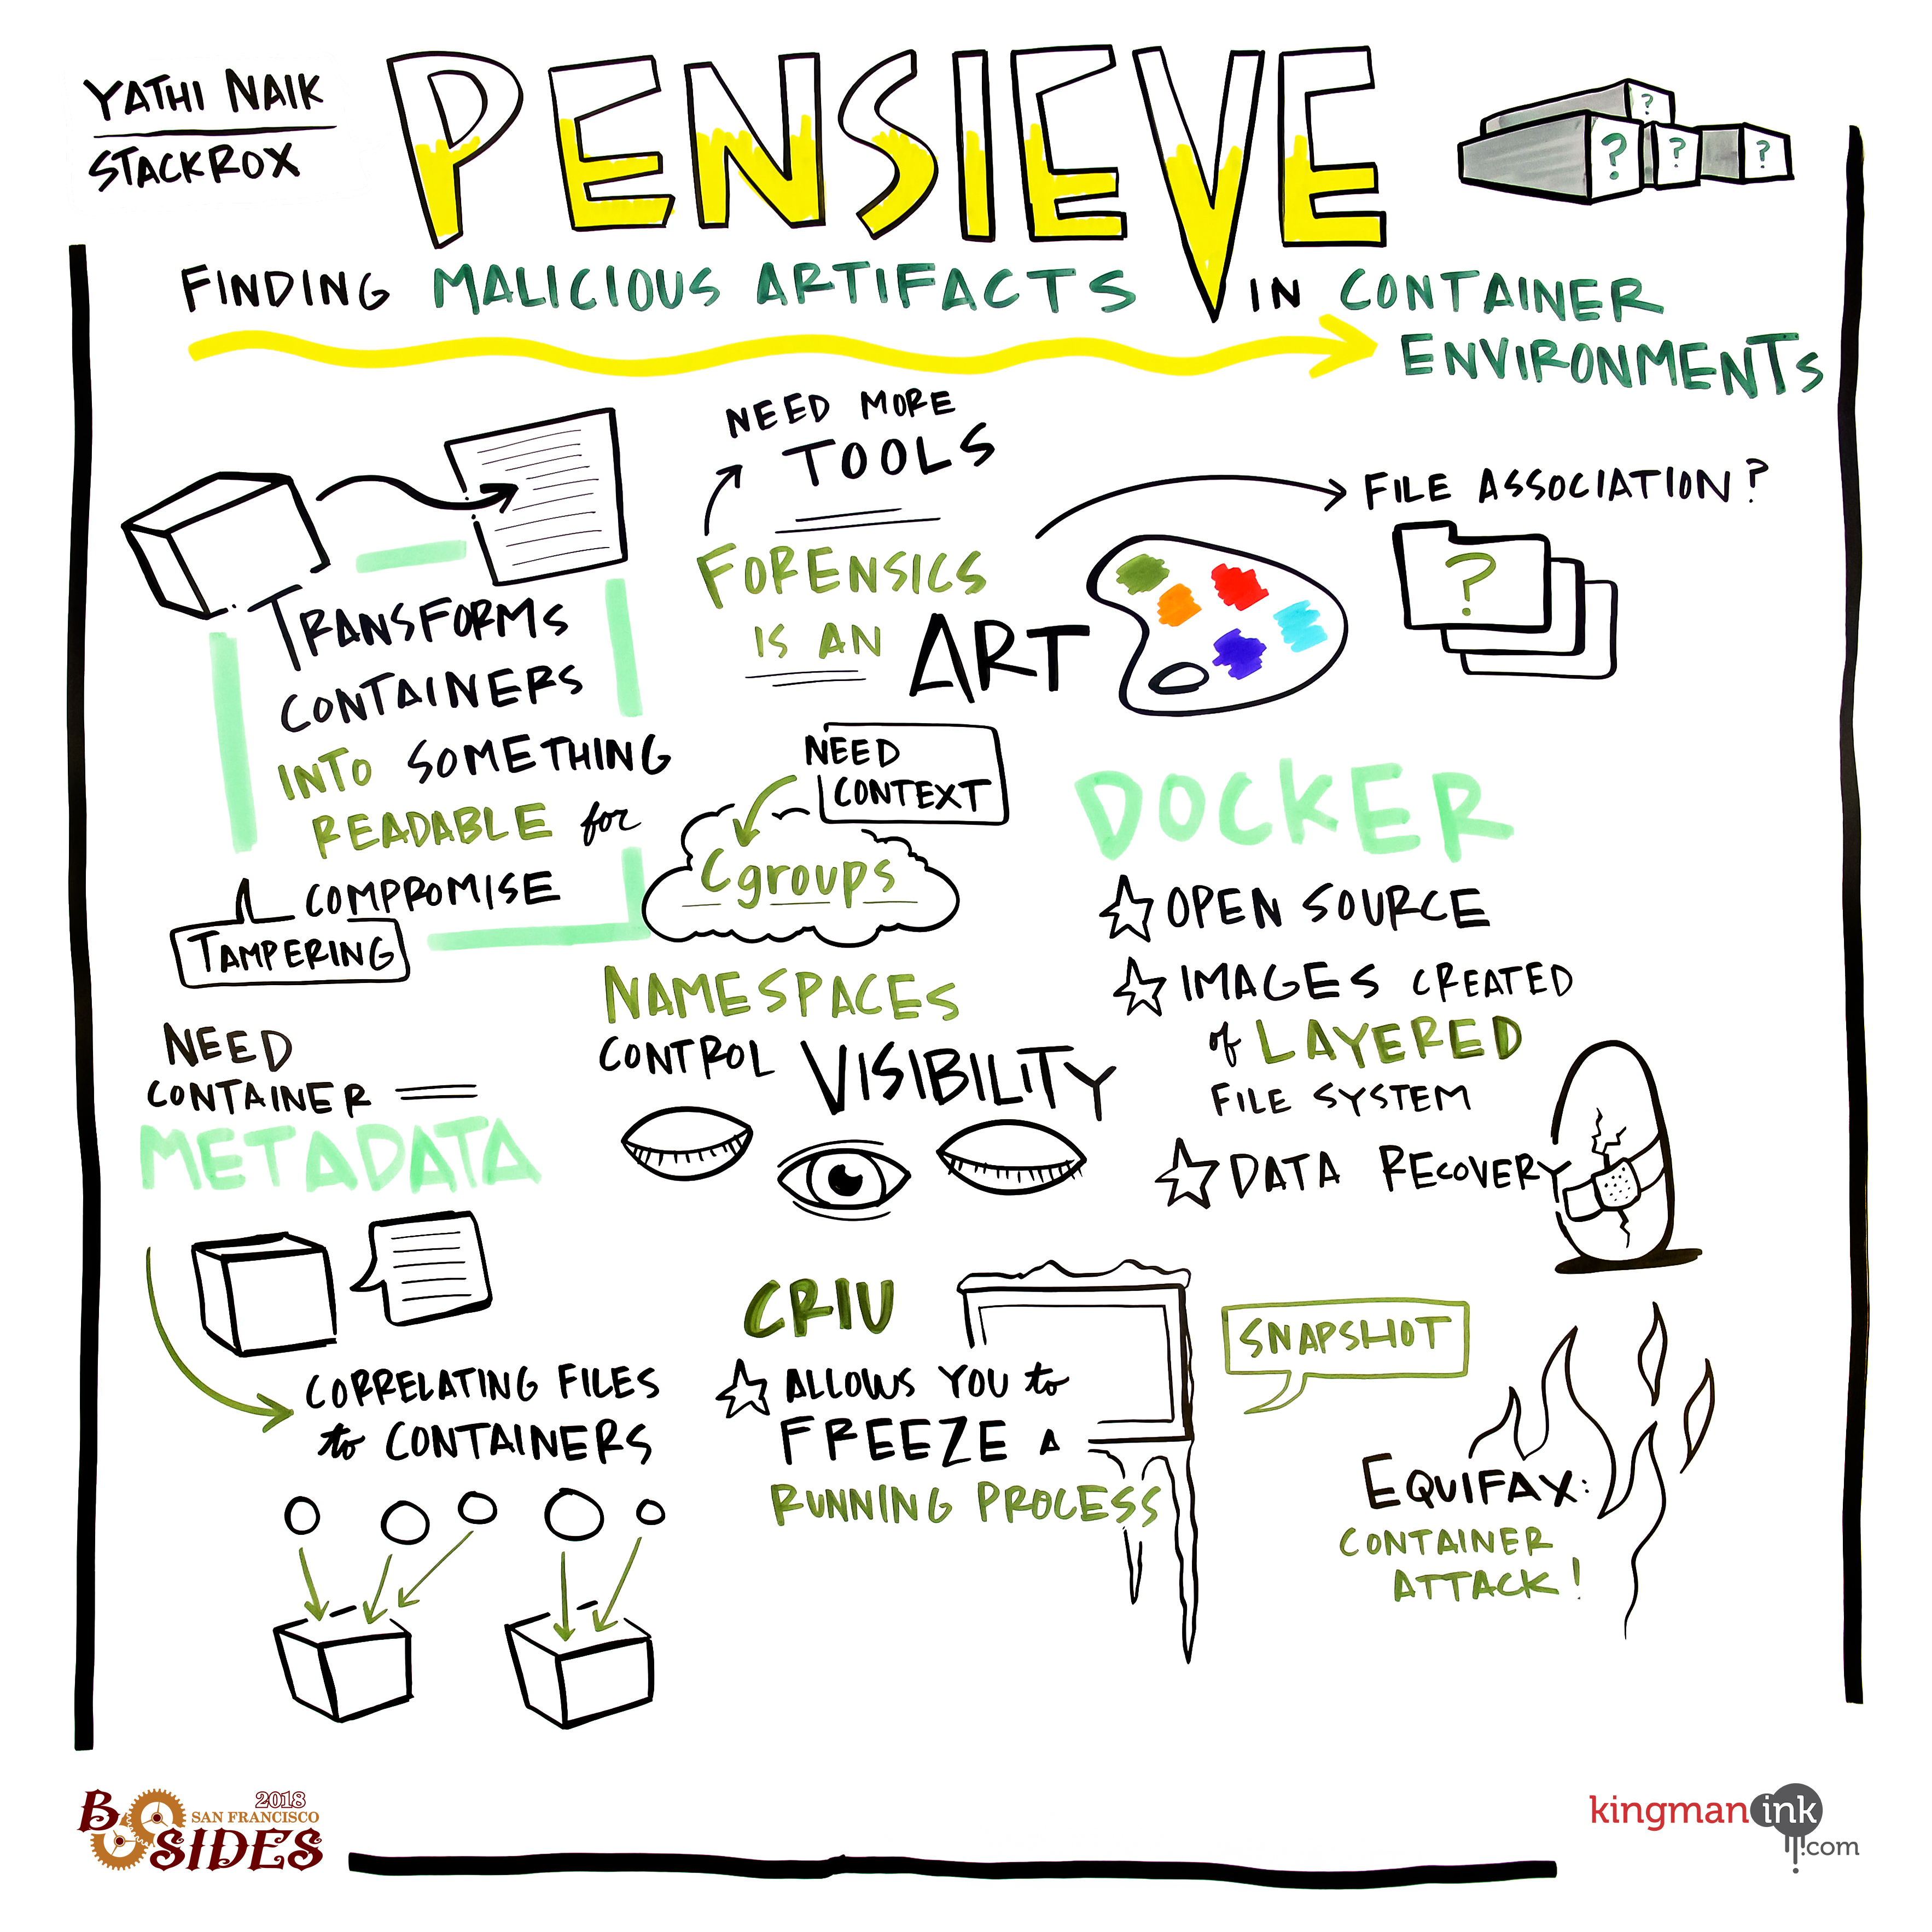 YATHI NAIK
STACKROX
PENSIEVE
FINDING MALICIOUS ARTIFACTS IN CONTAINER
ENVIRONMENTS
TRANSFORMS
CONTAINERS
INTO SOMETHING
READABLE for
COMPROMISE
TAMPERING
NEED MORE
TOOLS
FORENSICS
IS AN ART
FILE ASSOCIATION?
?
?
?
?
?
NEED
CONTEXT
Cgroups
NAMESPACES
CONTROL VISIBILITY
DOCKER
OPEN SOURCE
IMAGES CREATED
of LAYERED
FILE SYSTEM
DATA RECOVERY
NEED
CONTAINER
METADATA
CORRELATING FILES
to CONTAINERS
CRIU
ALLOWS YOU to
FREEZE A
RUNNING PROCESS
SNAPSHOT
EQUIFAX:
CONTAINER
ATTACK!
2018
B SAN FRANCISCO
SIDES
kingmanink
.com